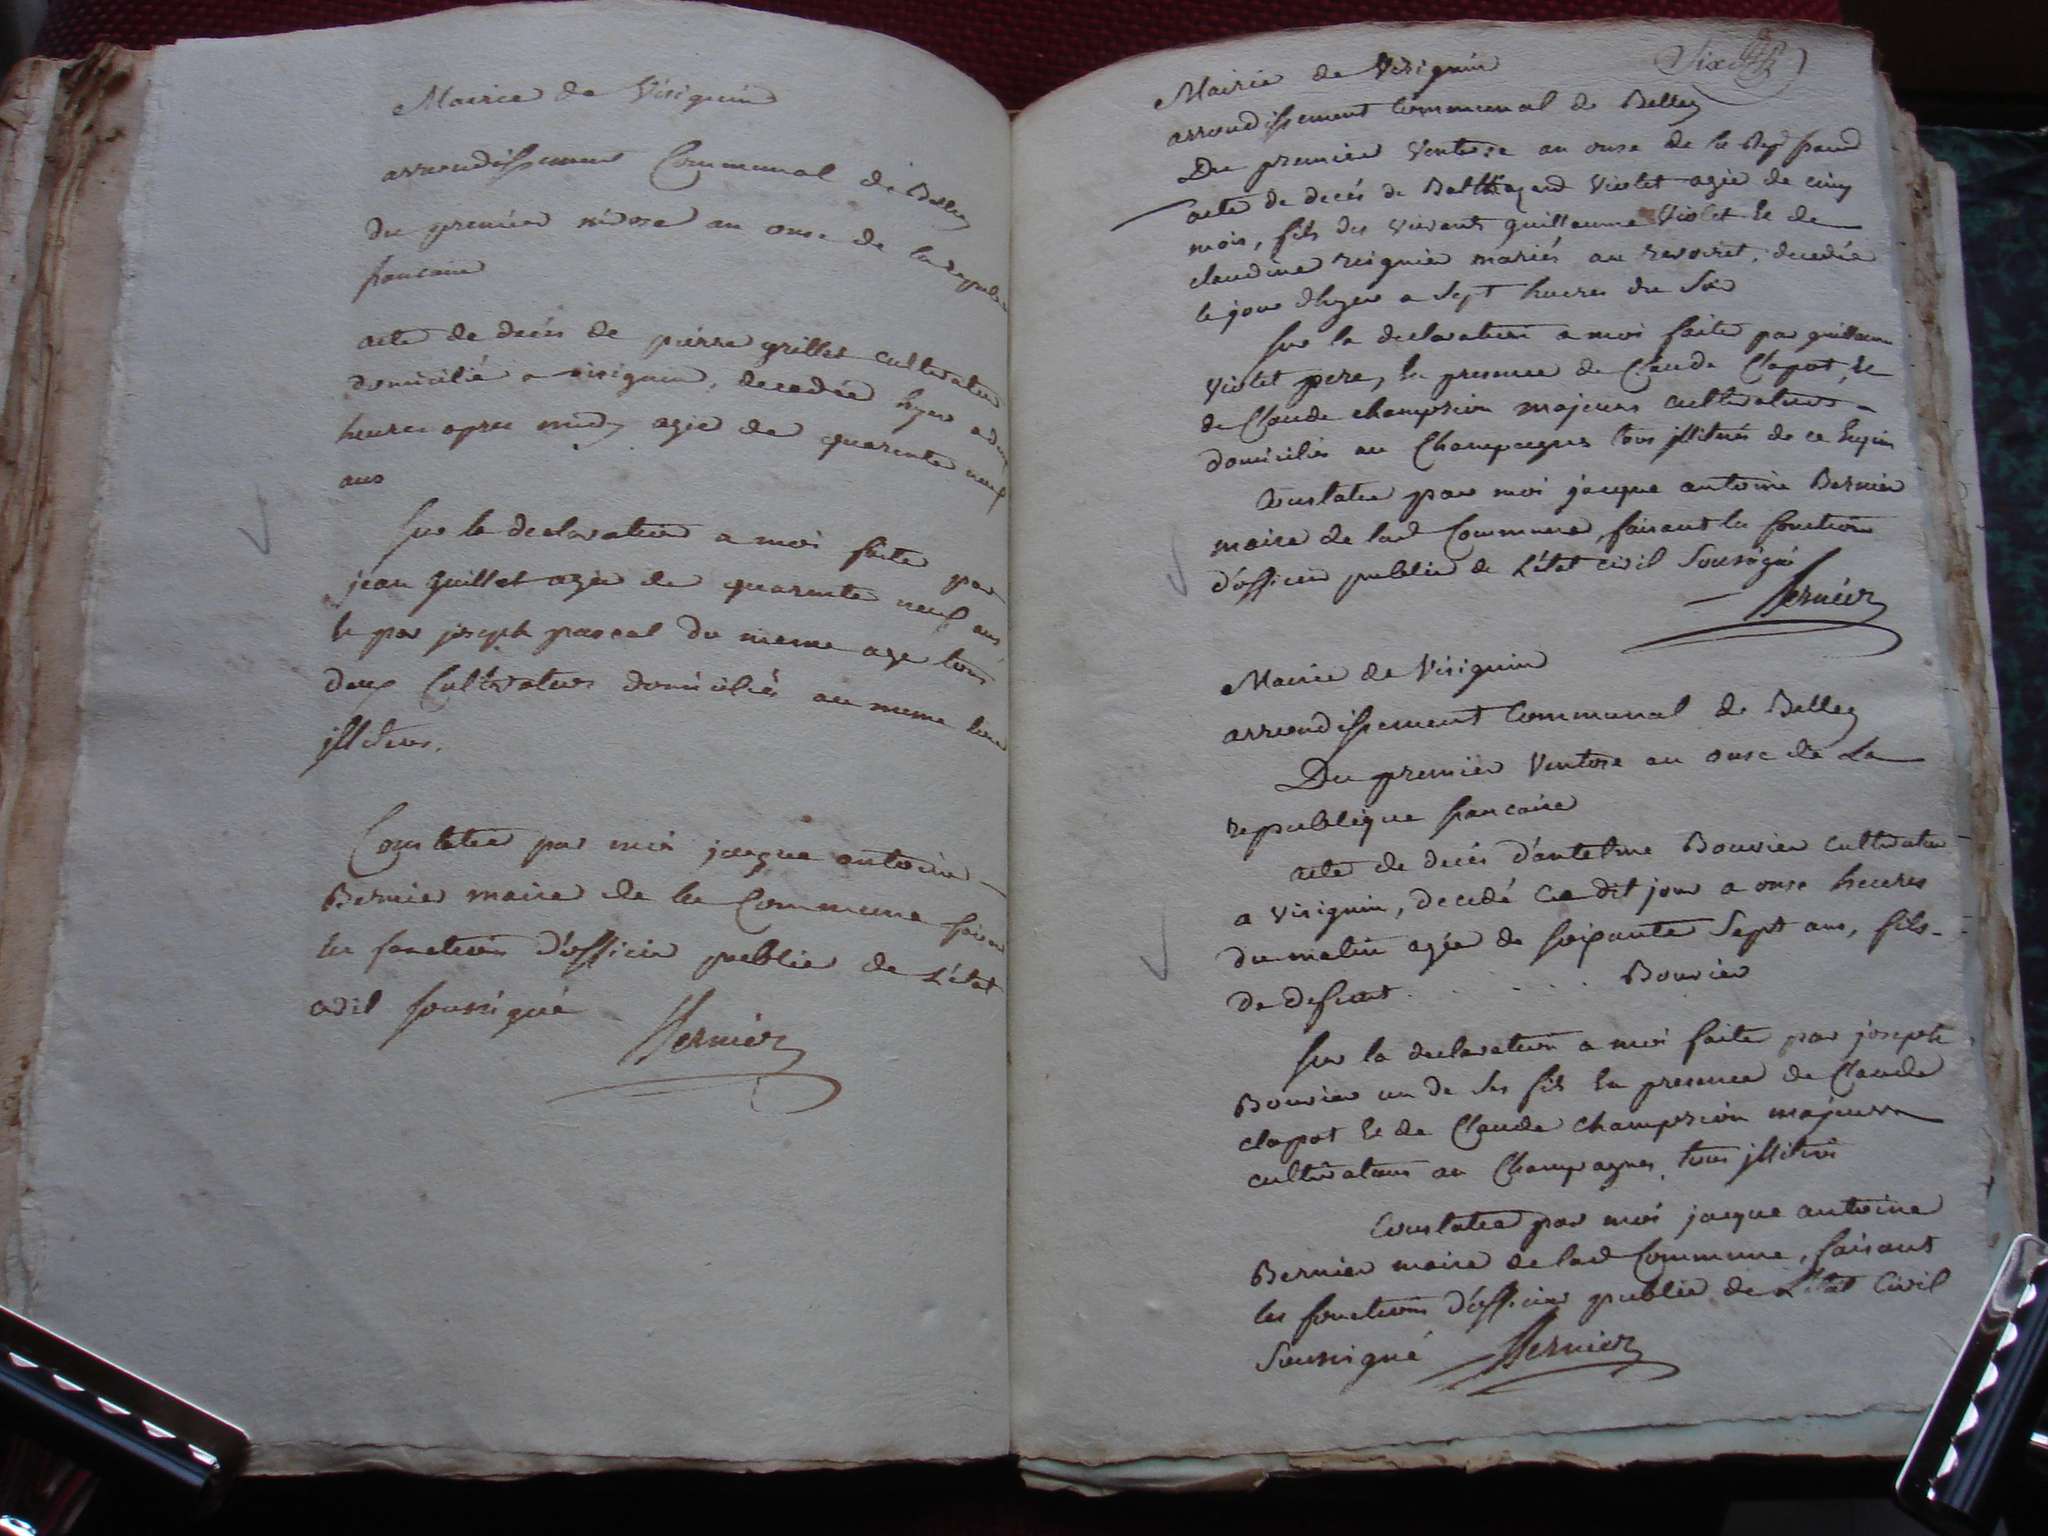 Mairie de Visignin
arrondissement Communal de Belley
du premier nivose an onse de la republ
francaise
acte de decés de pierre grillet cultivateur
domicilié a visignin, decedée hyer a deux
heures apres midy agée de quarente neuf
ans
sur la declaration a moi faite par
jean Guillet agée de quarente neuf ans,
& par joseph pascal du meme age tous
deux Cultivateurs domiciliés au meme lieu
jllitérés.
Constatée par moi jacque antoine
Bernier maire de la Commune faisant
les fonctions d'officier publie de L'état
civil soussigné
Bernier
Six
Mairie de Visignin
arrondissement Communal de Belley
Du premier Ventose an onse de la Rep francs
acte de decés de Balthazard Violet agée de cinq
mois, fils des vivants guillaume Violet & de
claudine reignier mariés au revoiret, decedée
le jour dhyer a Sept heures du Soir
sur la declaration a moi faite par guillaume
Violet pere, En presence de Claude Clapot, &
de Claude champrion majeurs cultivateurs
domiciliés au Champagnes tous jllitérés de ce Enquis
Constatée par moi jacque antoine Bernier
maire de lad Commune, faisant les fonctions
d'officier publie de L'état civil Soussigné
Bernier
Mairie de Visignin
arrondissement Communal de Belley
Du premier Ventose an onse de La
republique francaise
acte de decés d'antelme Bouvier cultivateur
a Visignin, decedé Ce dit jour a onse heures
du matin agée de soixante Sept ans, fils
de defunt . . . . . Bouvier
sur la declaration a moi faite par joseph
Bouvier un de Ses fils En presence de Claude
clapot & de Claude champrion majeurs
cultivateurs au Champagnes, tous jllitérés
Constatée par moi jacque antoine
Bernier maire de lad Commune, faisant
les fonctions d'officier publie de L'état Civil
Soussigné Bernier